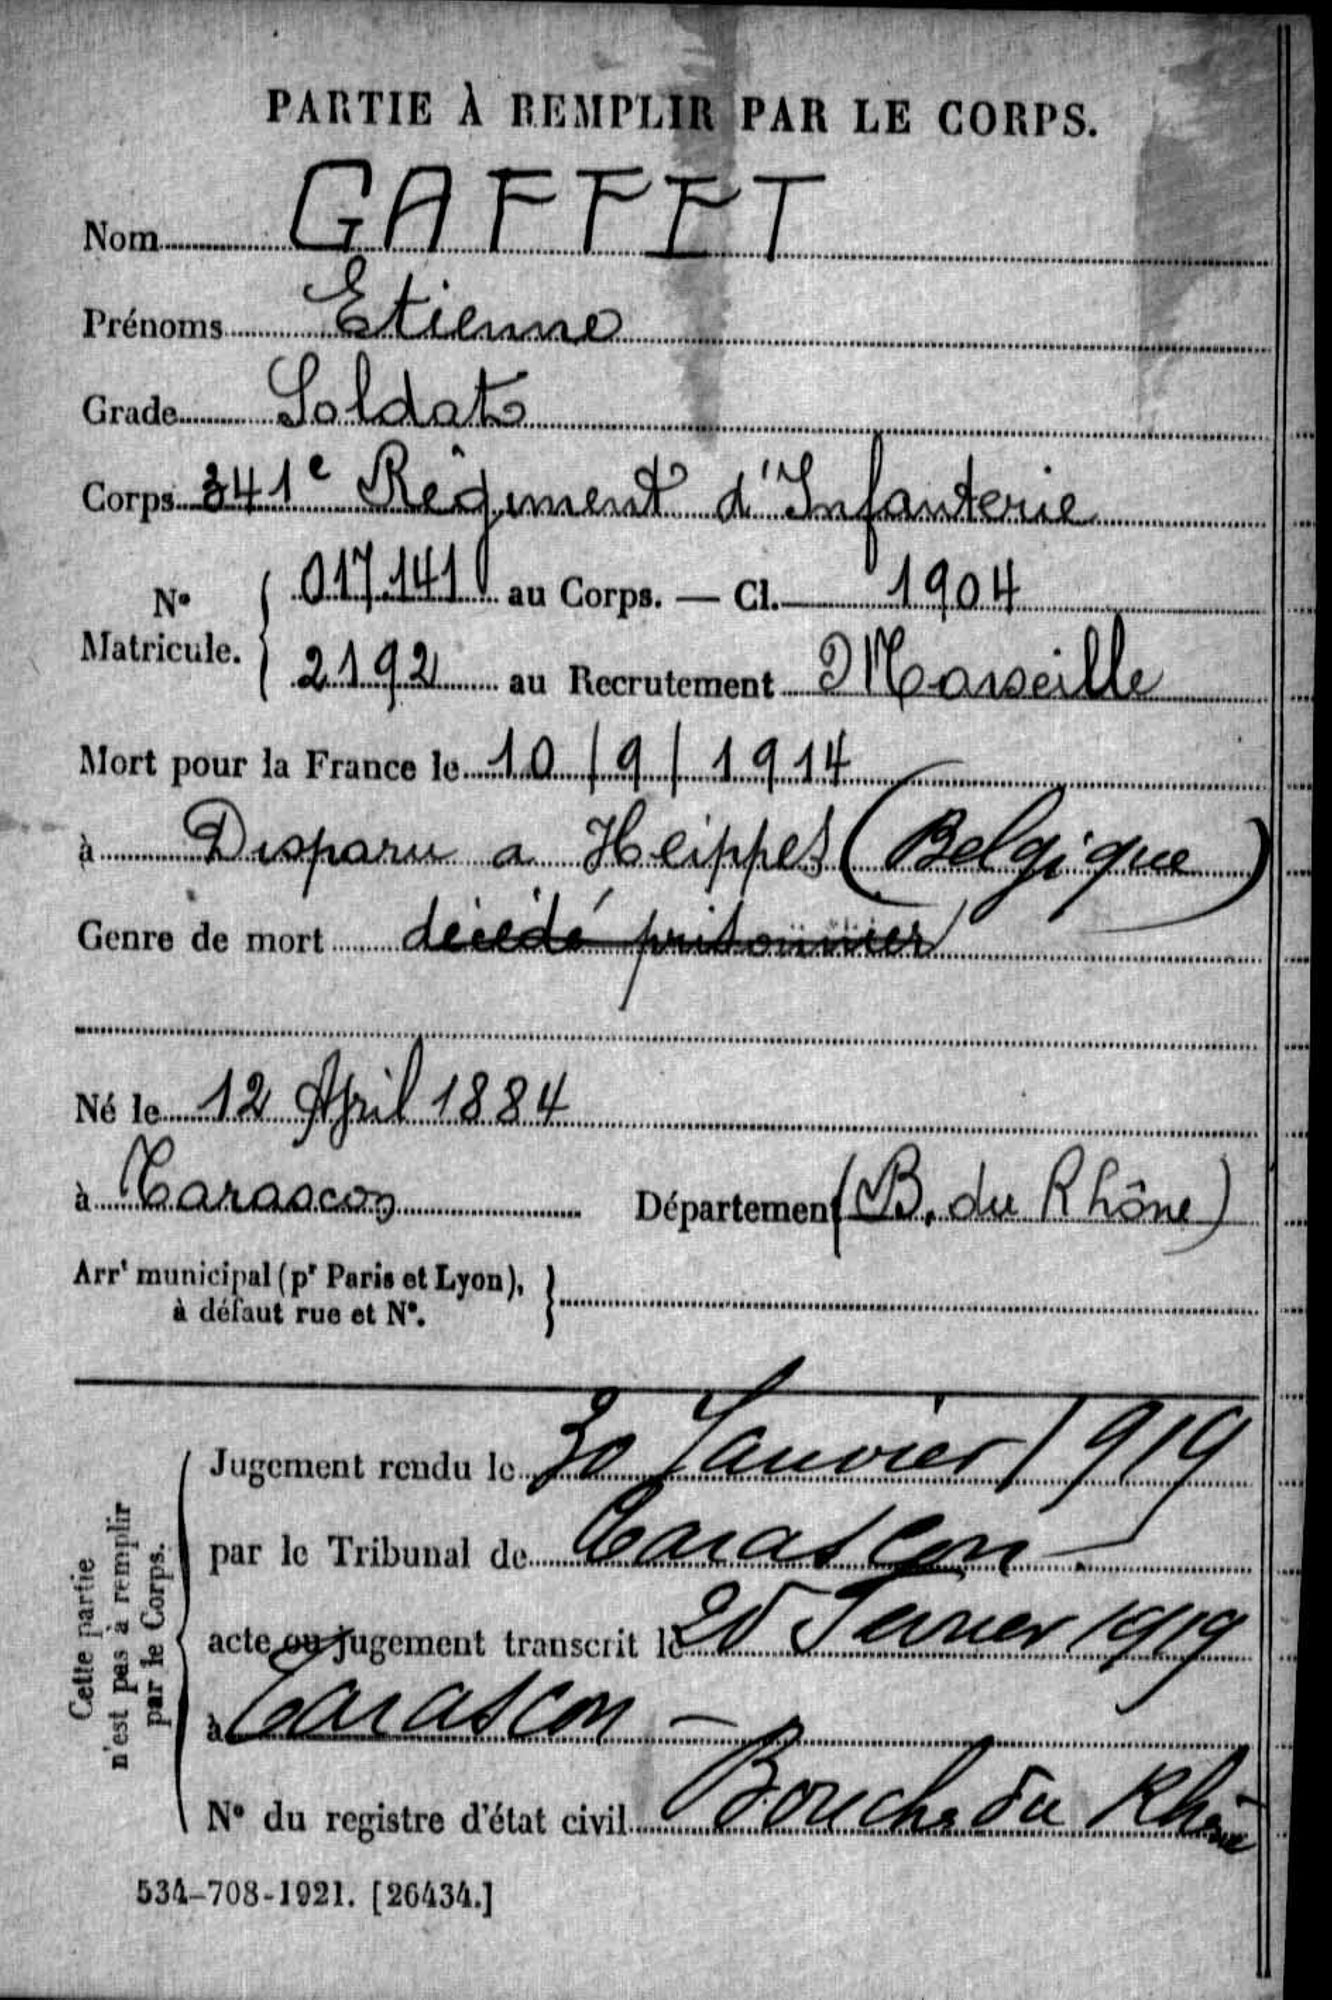 PARTIE À REMPLIR PAR LE CORPS.
Nom GAFFET
Prénoms Etienne
Grade Soldat
Corps 341e Régiment d'Infanterie
No Matricule. { 017.141 au Corps. — Cl. 1904
2192 au Recrutement Marseille
Mort pour la France le 10/9/1914
à Disparu a Heippes (Belgique)
Genre de mort décédé prisonnier
Né le 12 April 1884
à Tarascon Département (B. du Rhône)
Arrt municipal (pr Paris et Lyon), à défaut rue et No. }
Cette partie n'est pas à remplir par le Corps.
Jugement rendu le 30 Janvier 1919
par le Tribunal de Tarascon
acte ou jugement transcrit le 25 Fevrier 1919
à Tarascon —
No du registre d'état civil Bouche du Rhône
534-708-1921. [26434.]